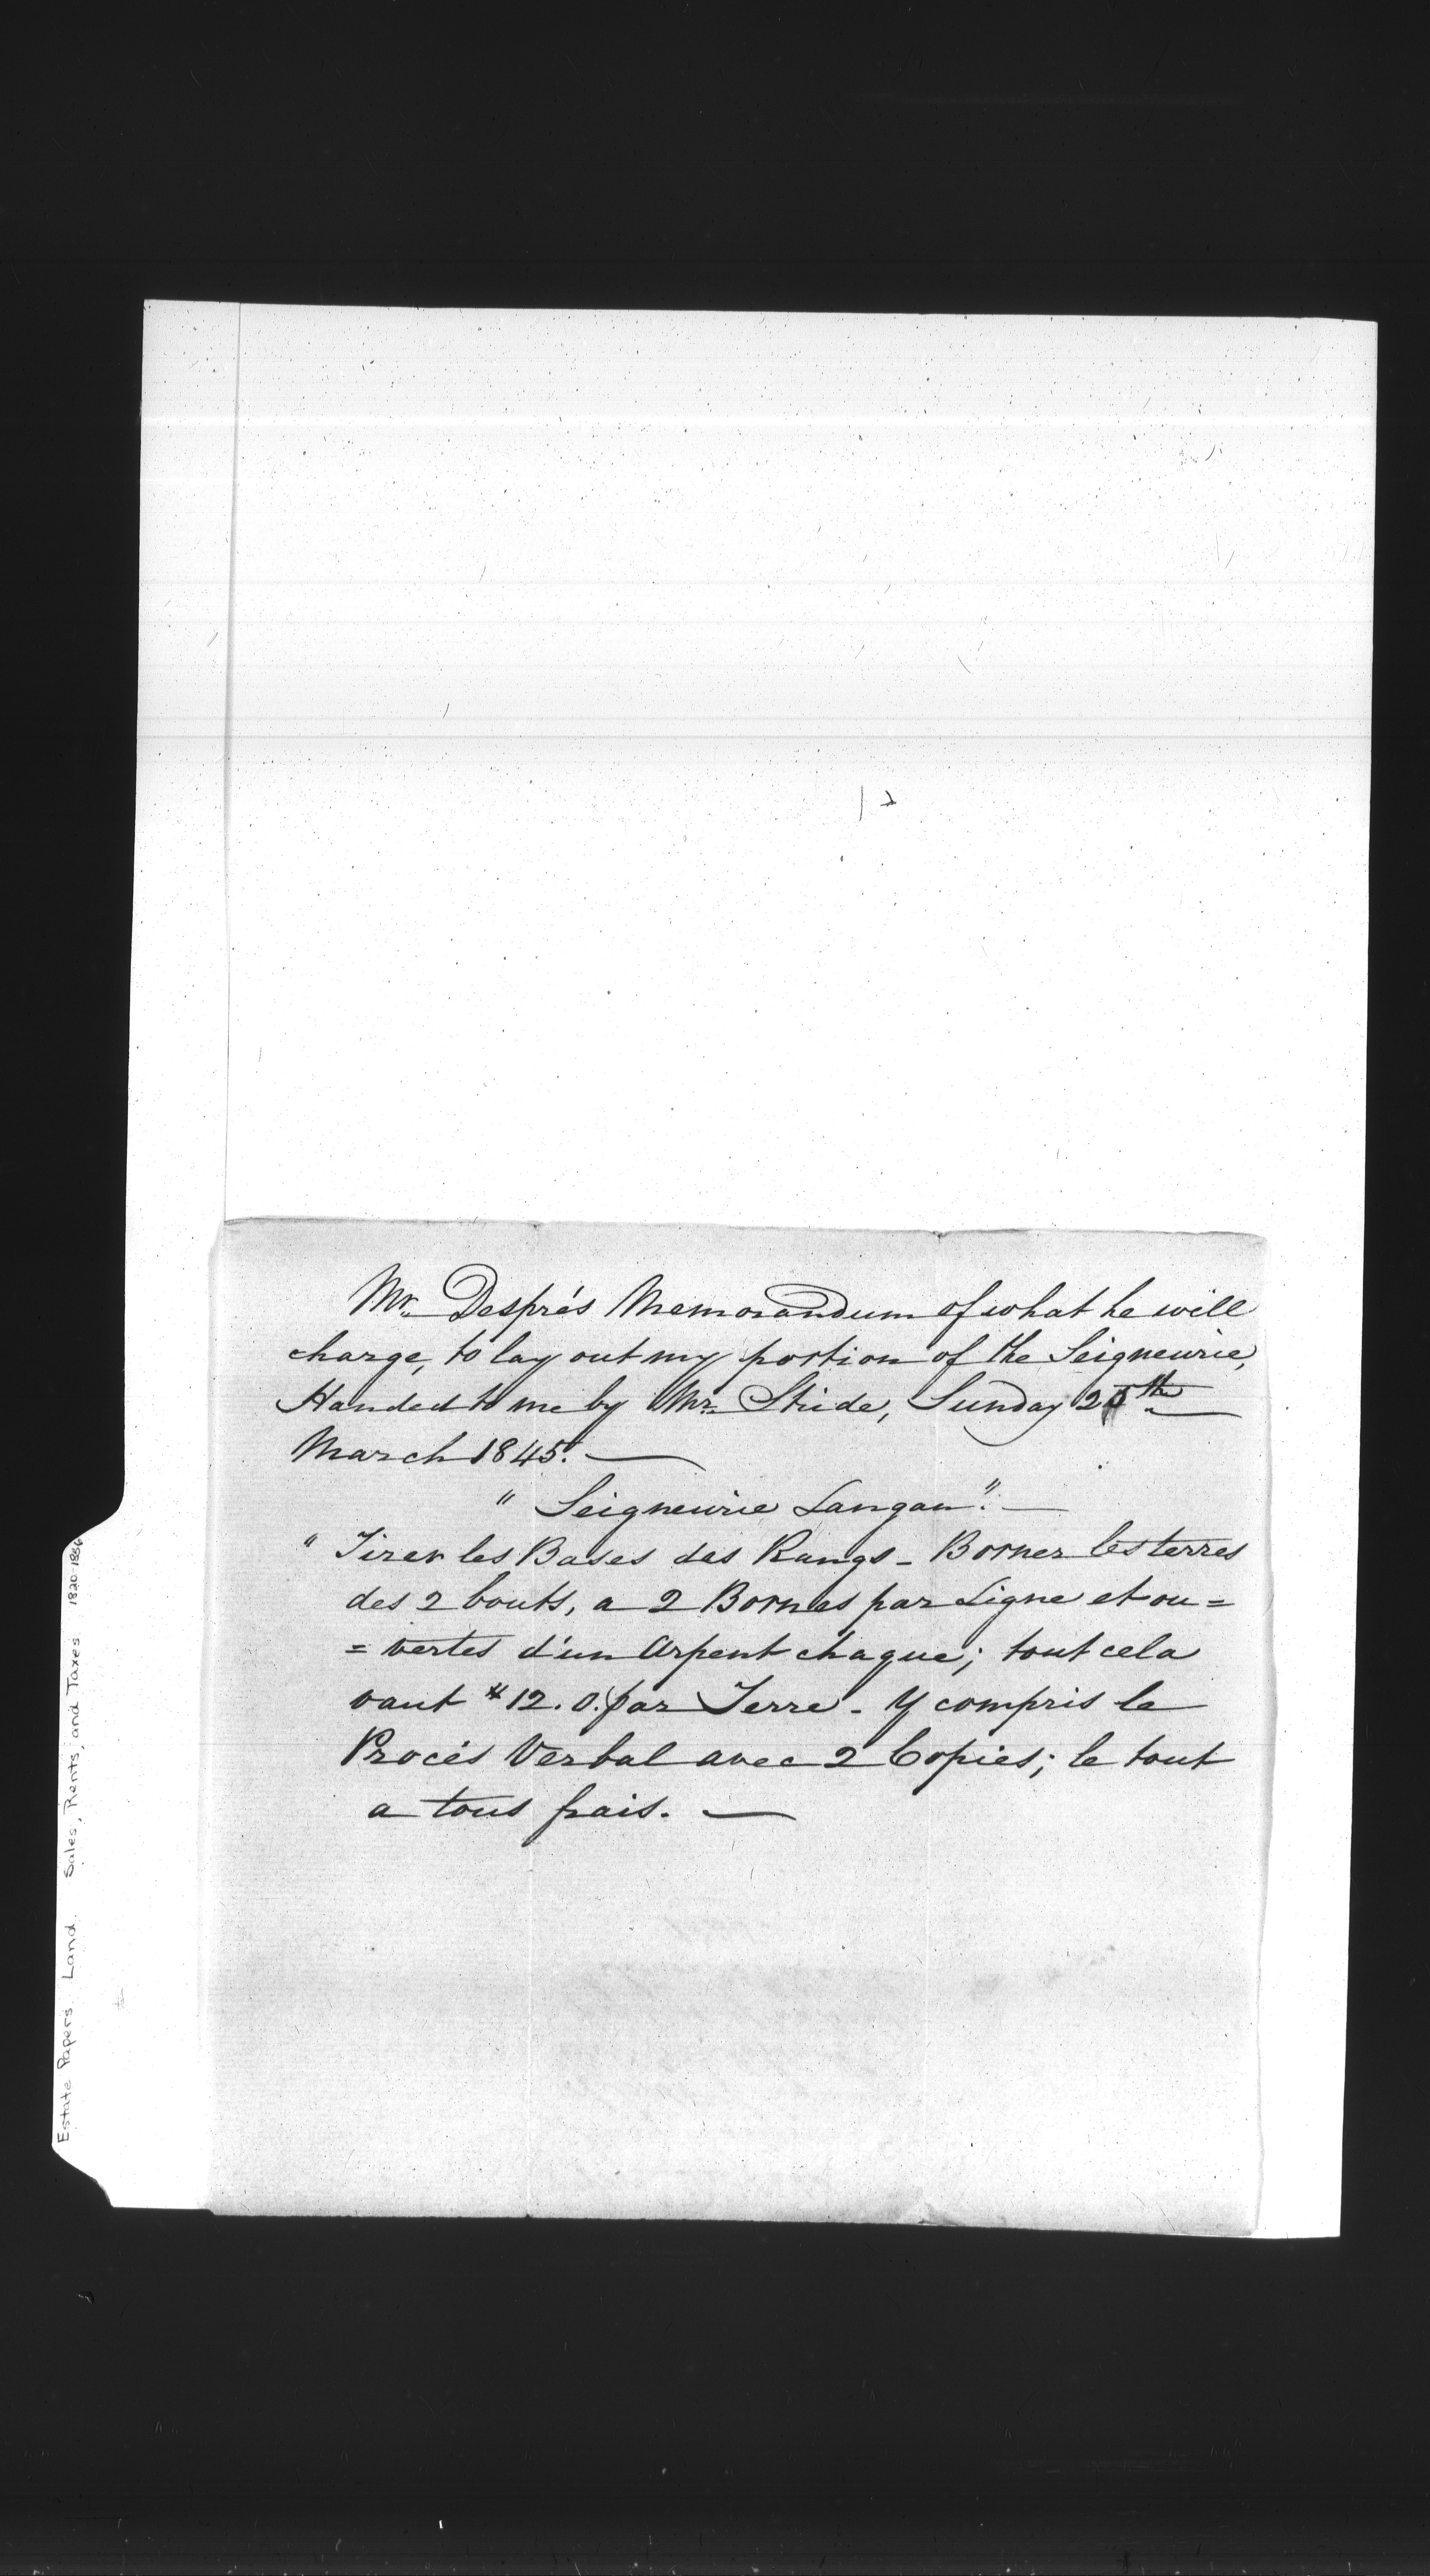 Mr. Després Memorandum of what he will
charge, to lay out my portion of the Seigneurie,
Handed to me by Mr. Stride, Sunday
March 1845. —
" Seigneurie Langan". —
" Tirer les Bases des Rangs - Borner les terres
des 2 bouts, a 2 Bornes par Ligne et ou=
= vertes d'un Arpent chaque; tout cela
vaut 12. 0. par Terre - Y compris le
Procés Verbal avec 2 Copies; le tout
a tous frais. —
Estate Papers. Land. Sales, Rents, and Taxes 1820-1856